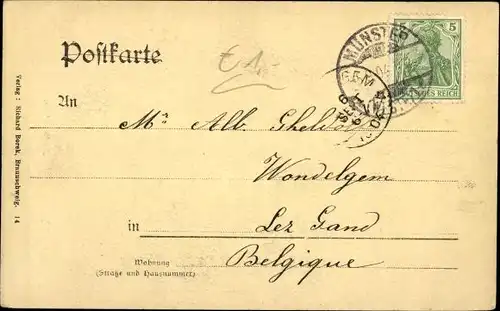 Postkarte
£1.-
MÜNSTER
5
DEUTSCHES REICH
An
Mr Alb. Ghel
Wondelgem
in Lez Gand
Wohnung
(Straße und Hausnummer)
Belgique
Verlag: Richard Borek, Braunschweig. 14